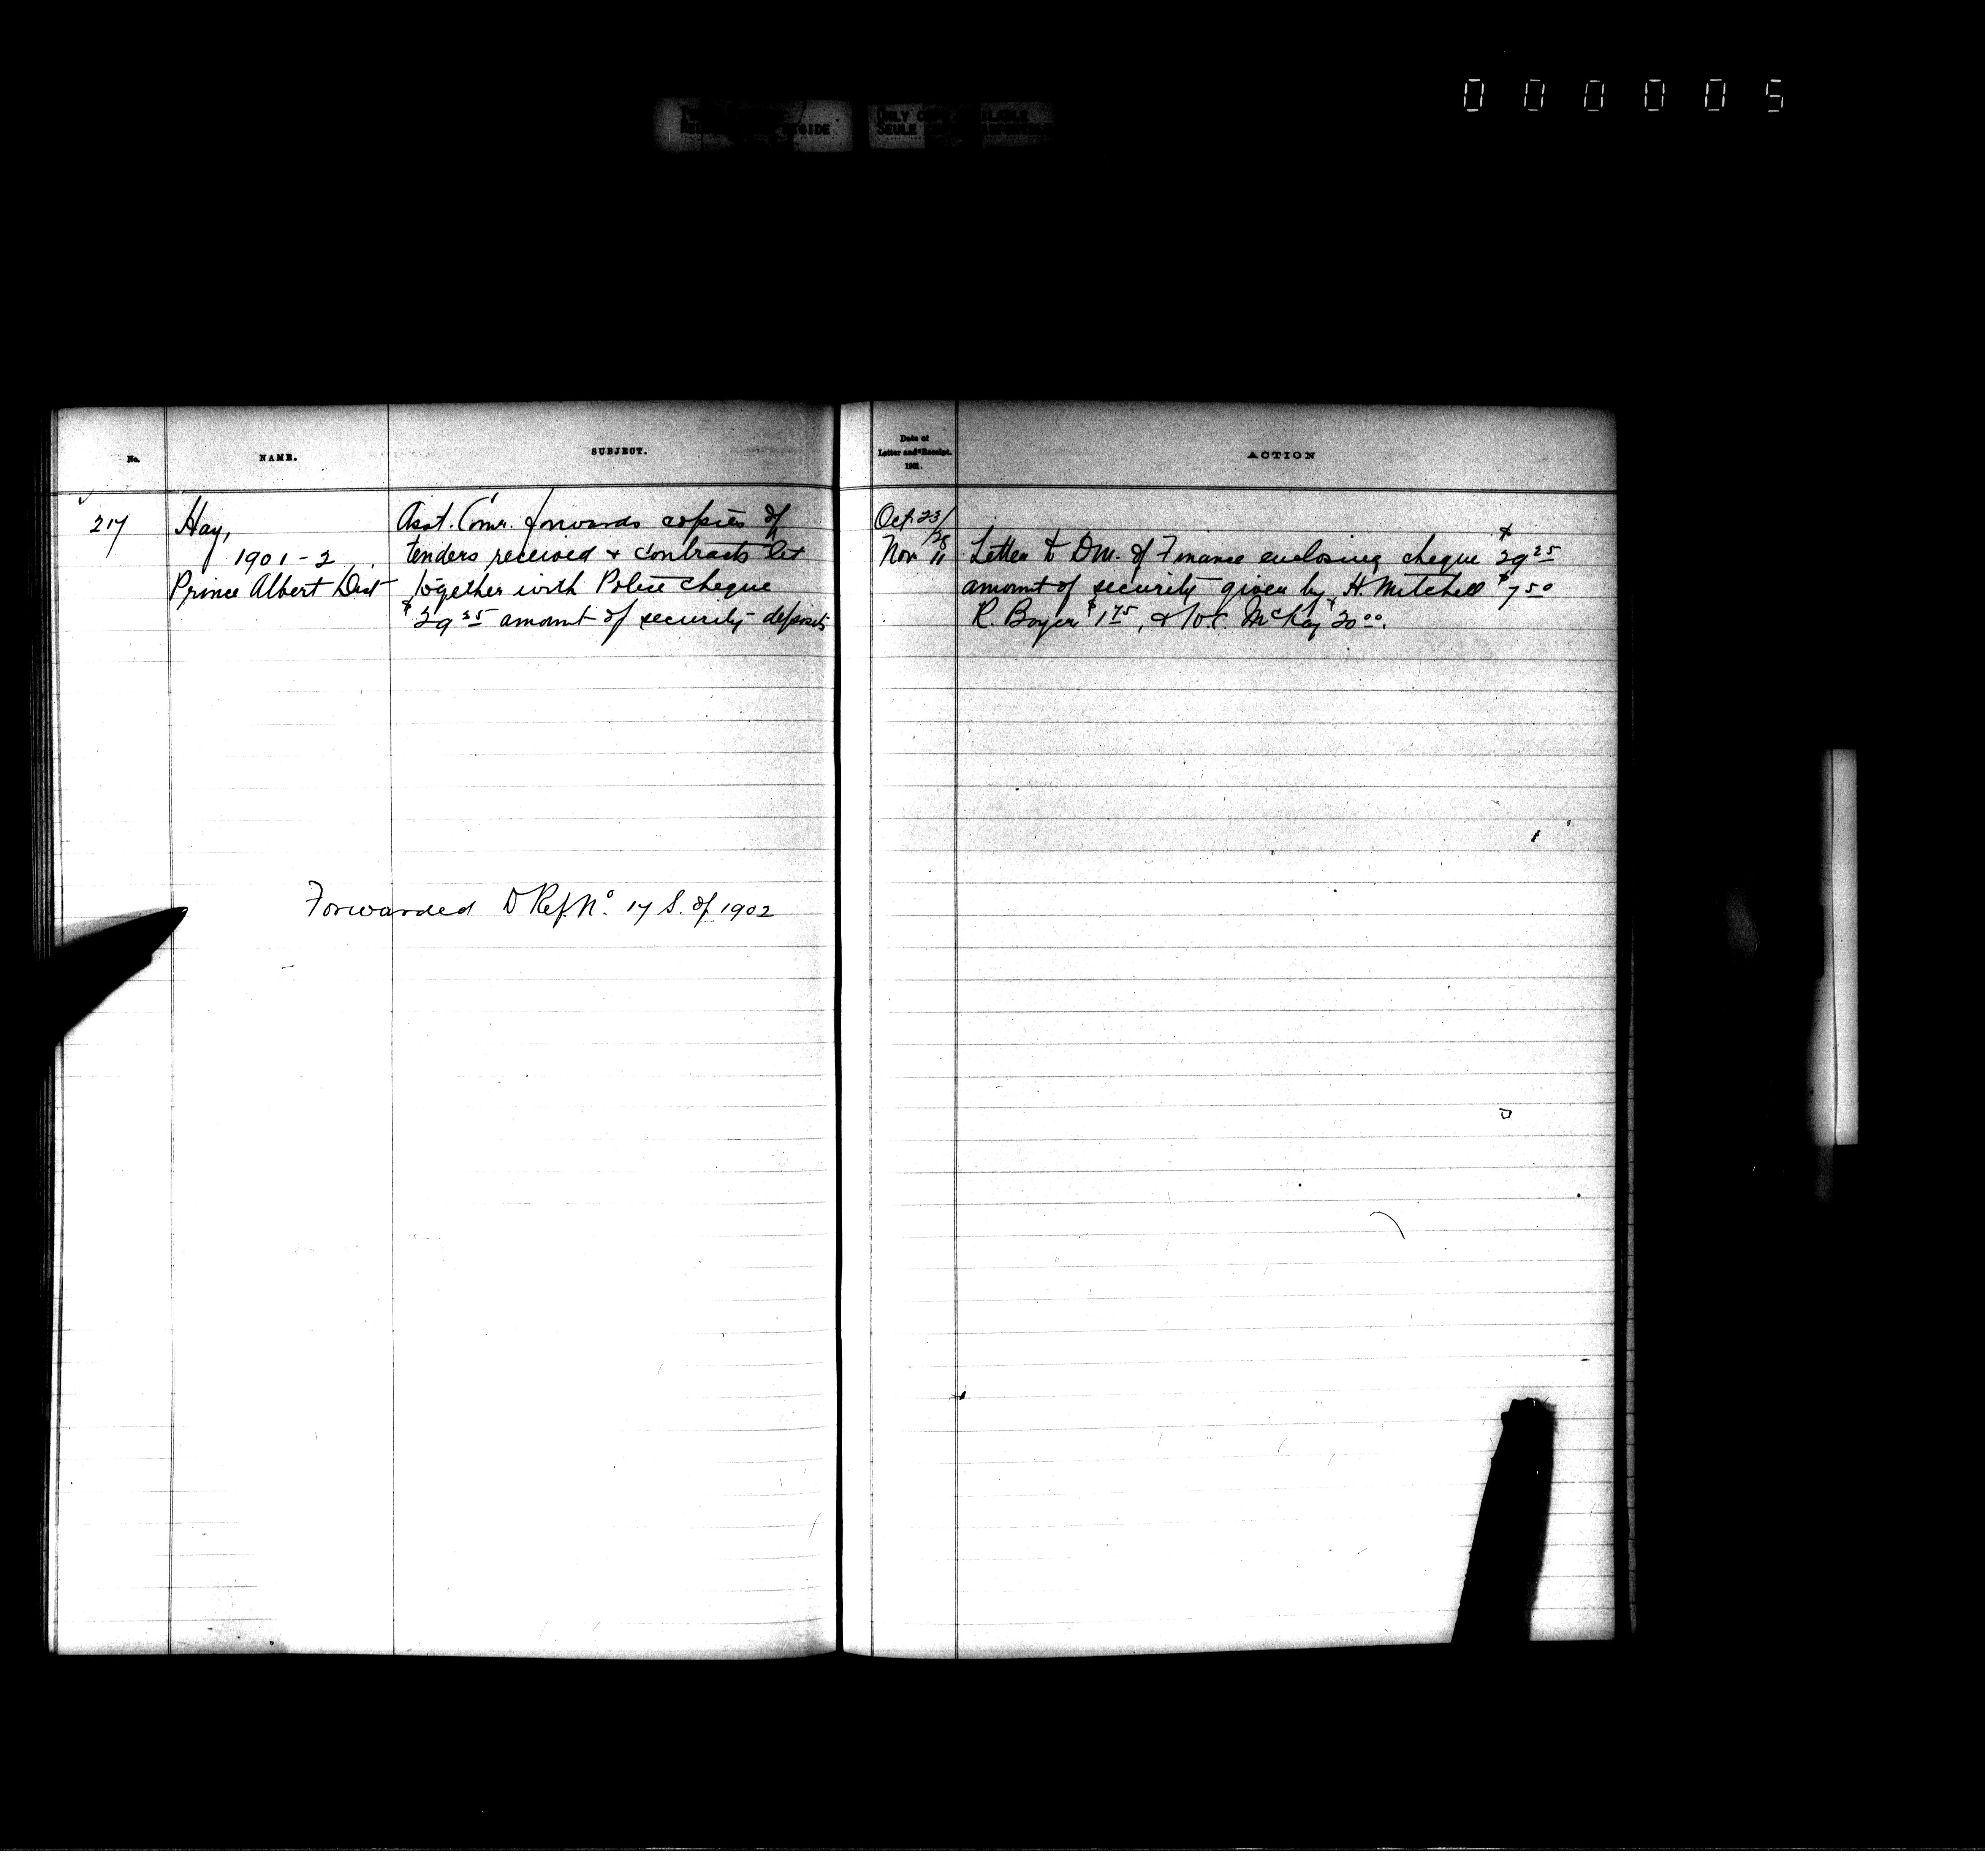 000005
ONLY COPY AVAILABLE
SEULE
No.
NAME.
SUBJECT.
217
Hay,
1901-2
Prince Albert Dist
Asst. Comr. forwards copies of
tenders received & contracts let
together with Police cheque
$29 25 amount of security deposits
Forwarded to Ref. No. 17 S. of 1902
Date of
Letter and Receipt.
1901.
ACTION
Oct. 23/28
Nov 11 Letter to DM. of Finance enclosing cheque $29 25
amount of security given by H. Mitchell $7 50
R. Boyer $1 75, & McKay $20 00.